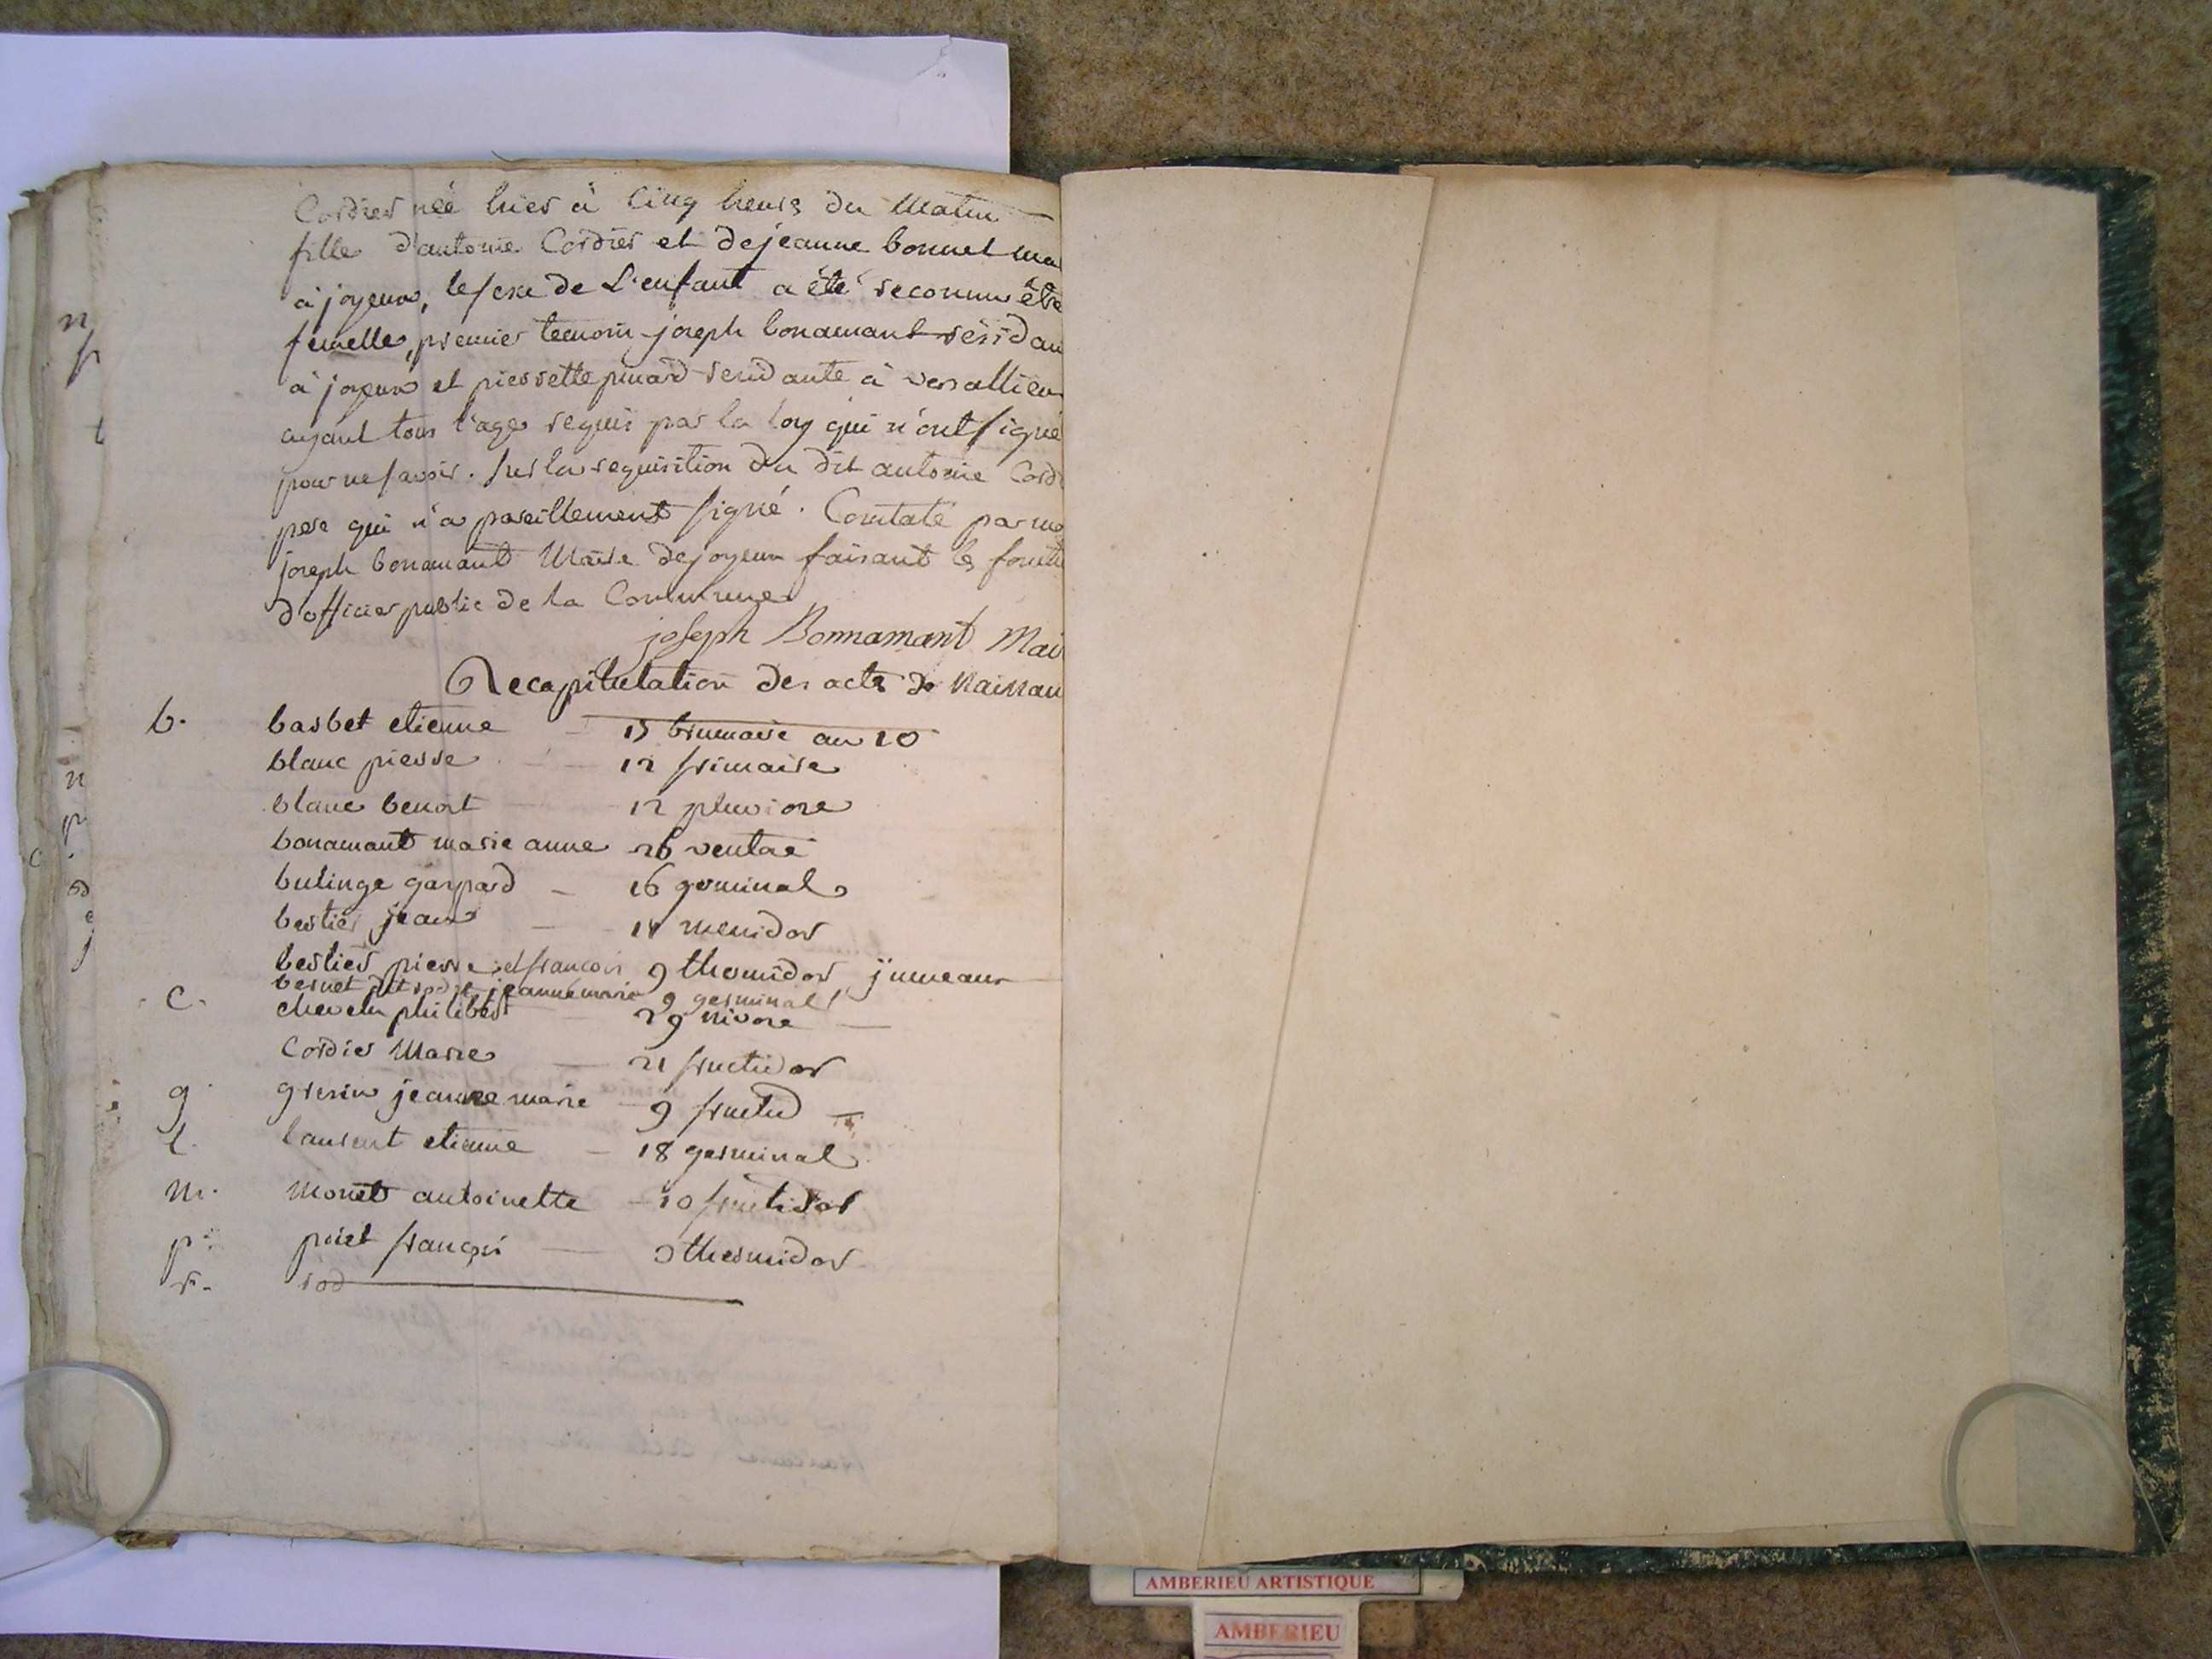 Cordier néé hier à Cinq heurs du Matin
fille d'antoine Cordier et de jeanne bonnet ma
à joyeux, le sexe de L'enfant a été reconnu être
femelle, premier temoin joseph bonamant résidan
à joyeux et pierrette pinard residante à versallieu
ayant tous l'age requis par la loy qui n'ont signé
pour ne savoir. sur la requisition du dit antoine Cord
pere qui n'a pareillement signé. Constaté par mo
joseph bonamant Maire de joyeux faisant les fonct
d'officier public de la Commune
joseph Bonnamant Mai
Recapitulation des acts de Naissan
b. barbet etienne 15 brumaire an 10
blanc pierre 12 frimaire
blanc benoit 12 pluviose
bonamant marie anne 26 ventse
bulinge gaspard 16 germinal
bertier jean 18 messidor
bertier pierre et francois 9 thermidor, jumeaux
bernet dit jeanne marie 9 germinal
c. chevelu philibert 29 nivose
Cordier Marie 21 fructidor
g gresin jeanne marie 9 fructid
l. laurent etienne 18 germinal
m. Monet antoinette 10 fructidor
p. poiet françois 9 thermidor
r. rod
n
p
t
n
p
c
d
e
j
AMBERIEU ARTISTIQUE
AMBERIEU